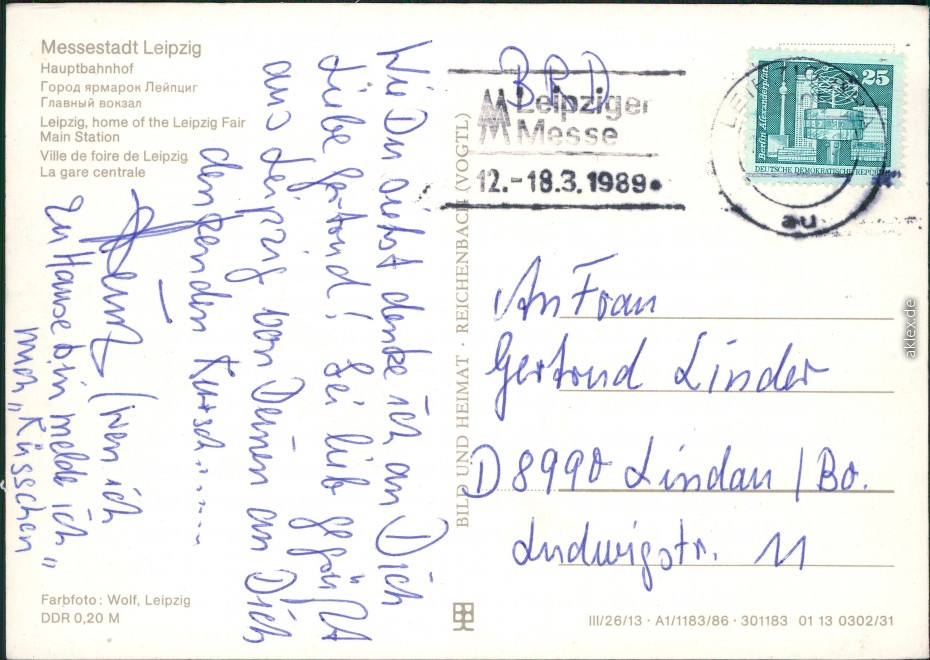 Messestadt Leipzig
Hauptbahnhof
Город ярмарок Лейпциг
Главный вокзал
Leipzig, home of the Leipzig Fair
Main Station
Ville de foire de Leipzig
La gare centrale
Wie Du siehst denke ich an Dich
Liebe Gertrud! Sei lieb gegrüßt
aus Leipzig von Deinem an Dich
denkenden
(wen ich
zu Hause bin melde ich
mich „Küsschen"
Farbfoto: Wolf, Leipzig
DDR 0,20 M
BILD UND HEIMAT · REICHENBACH (VOGTL)
BRD
Leipziger
Messe
12.-18.3.1989
LEIPZIG
au
25
Berlin, Alexanderplatz
DEUTSCHE DEMOKRATISCHE REPUBLIK
An Frau
Gertrud Linder
D 8990 Lindau / Bo.
Ludwigstr. 11
III/26/13 · A1/1183/86 · 301183 01 13 0302/31
aklex.de